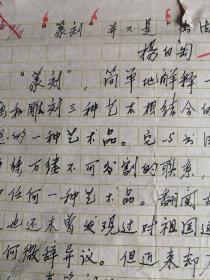 "篆刻" 并不是 书法
杨白匋
"篆刻",简单地解释一
和雕刻三种艺术相结合的
的一种艺术品。它与书
千丝万缕不可分割的联系,
任何一种艺术品。翻阅
也还未曾发现过对祖国这
何微辞异议。但近来却